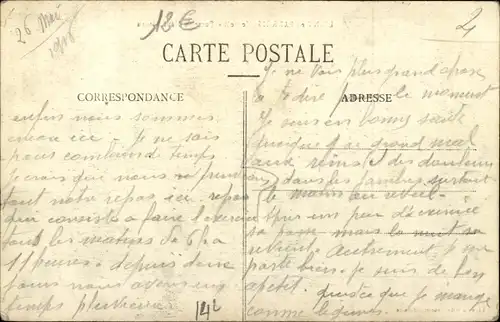 26 Mai
1918
18€
2
CARTE POSTALE
CORRESPONDANCE
ADRESSE
enfin nous sommes
encore ici. Je ne sais
pour combien de temps
Je crois que nous
tout notre repos ici. repos
qui consiste a faire l'exercice
tout les matins de 6 h a
11 heures. depuis deux
jours nous avons eu
temps pluvieux
Je ne vois plus grand chose
a te dire pour le moment
Je suis en bonne santé
quoique j'ai grand mal
aux reins & des douleurs
dans les jambes surtout
le matin au réveil.
apres un peu d'exercice
sa passe mais la nuit sa
revient. Autrement je me
porte bien. Je suis de bon
apetit. que je mange
comme
142